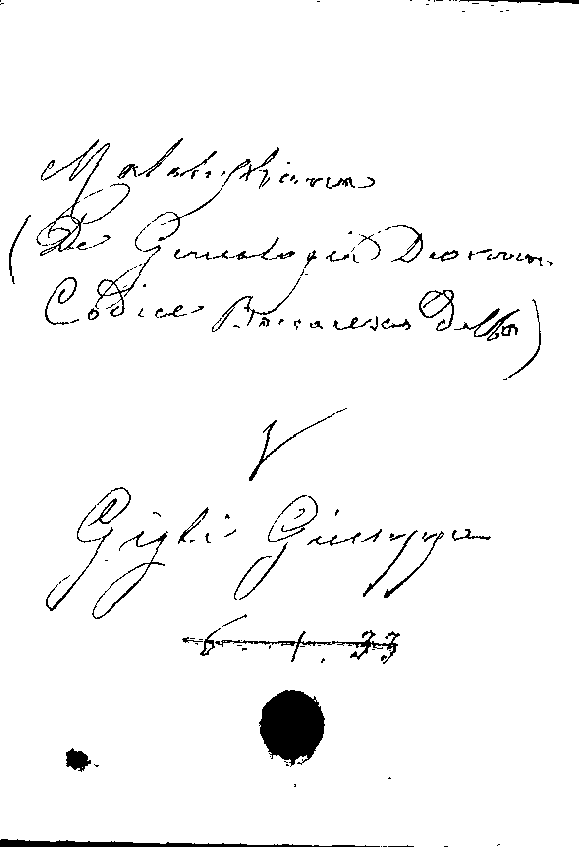 Malatestiana
(De Genealogia Deorum
Codice Della)
V
Gigli Giuseppe
6. 1. 33